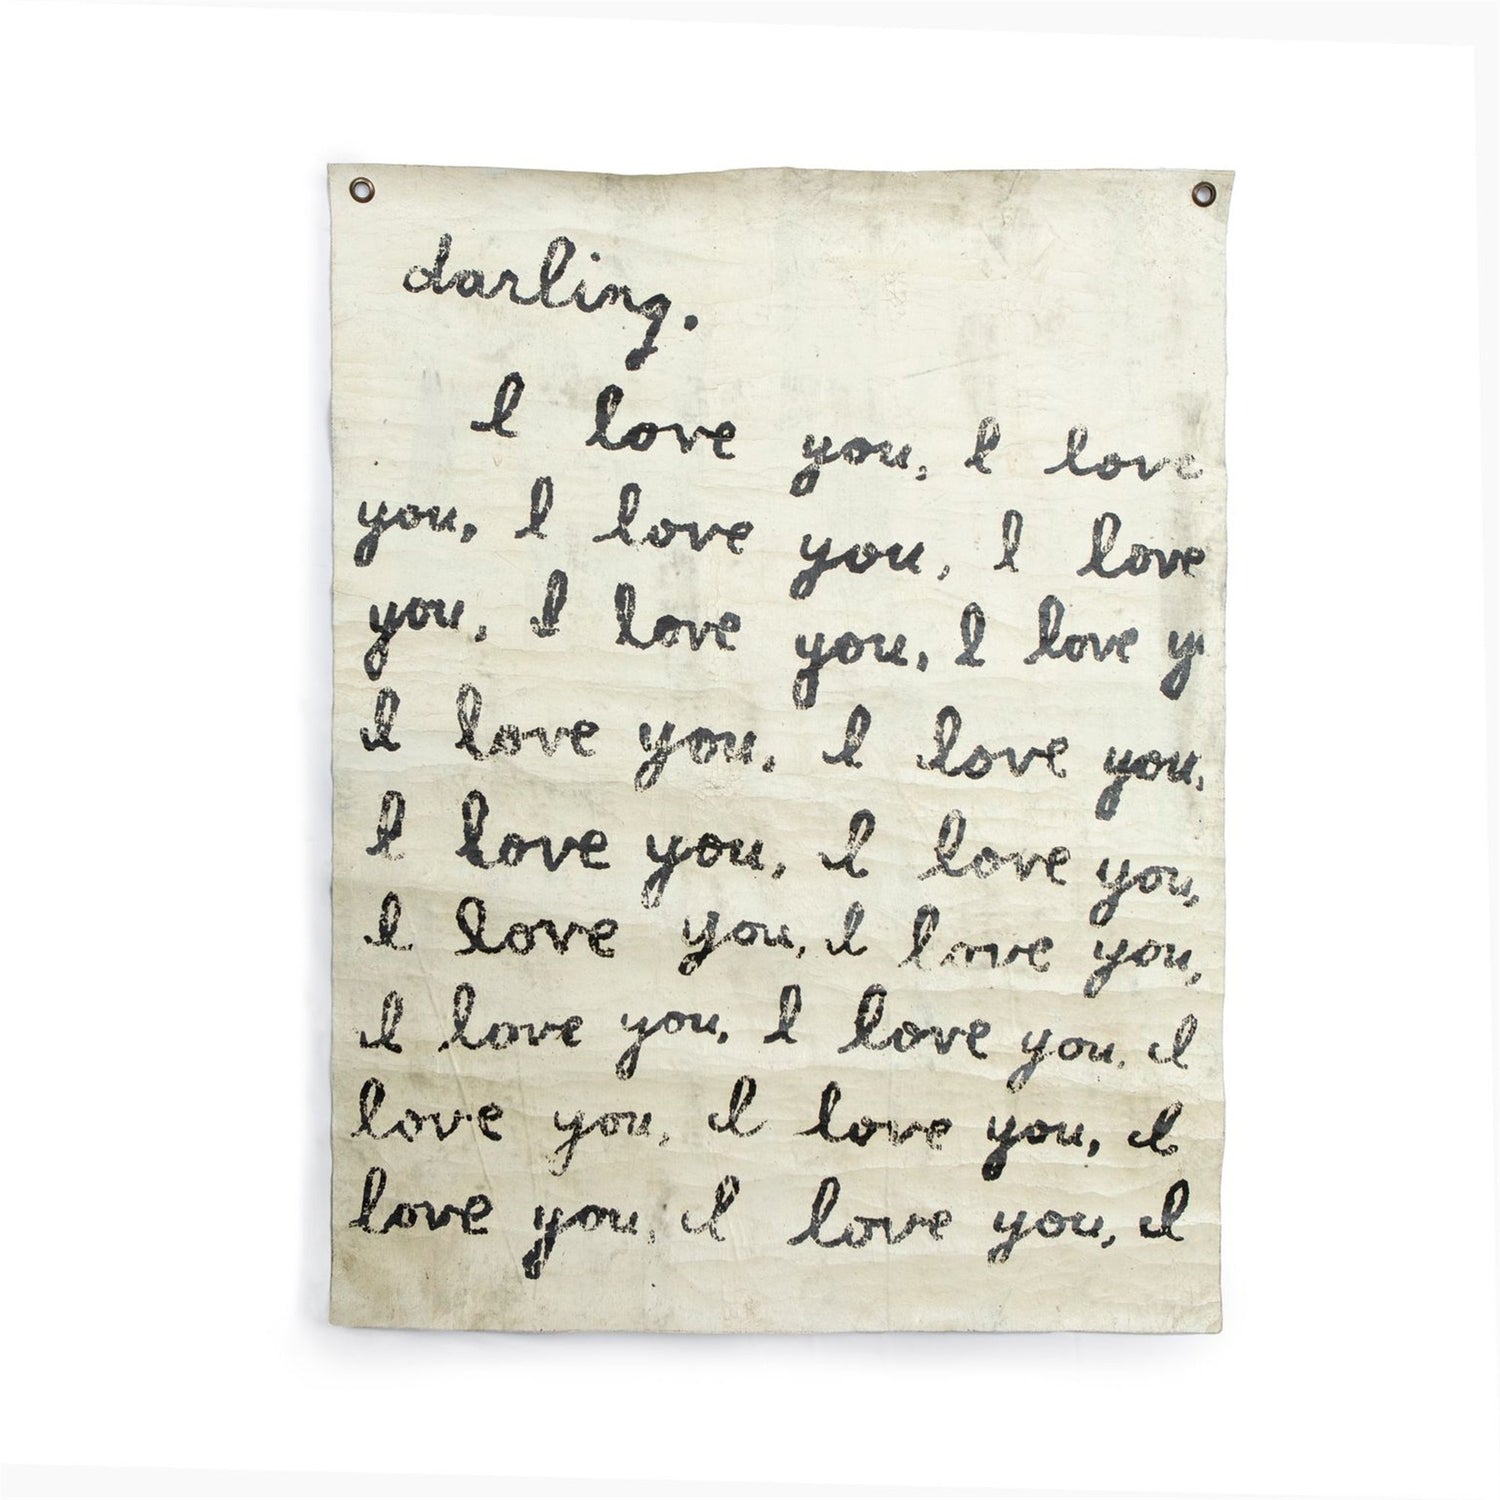 darling.
I love you, I love
you, I love you, I love
you, I love you, I love y
I love you, I love you,
I love you, I love you,
I love you, I love you,
I love you, I love you. I
love you, I love you, I
love you, I love you, I